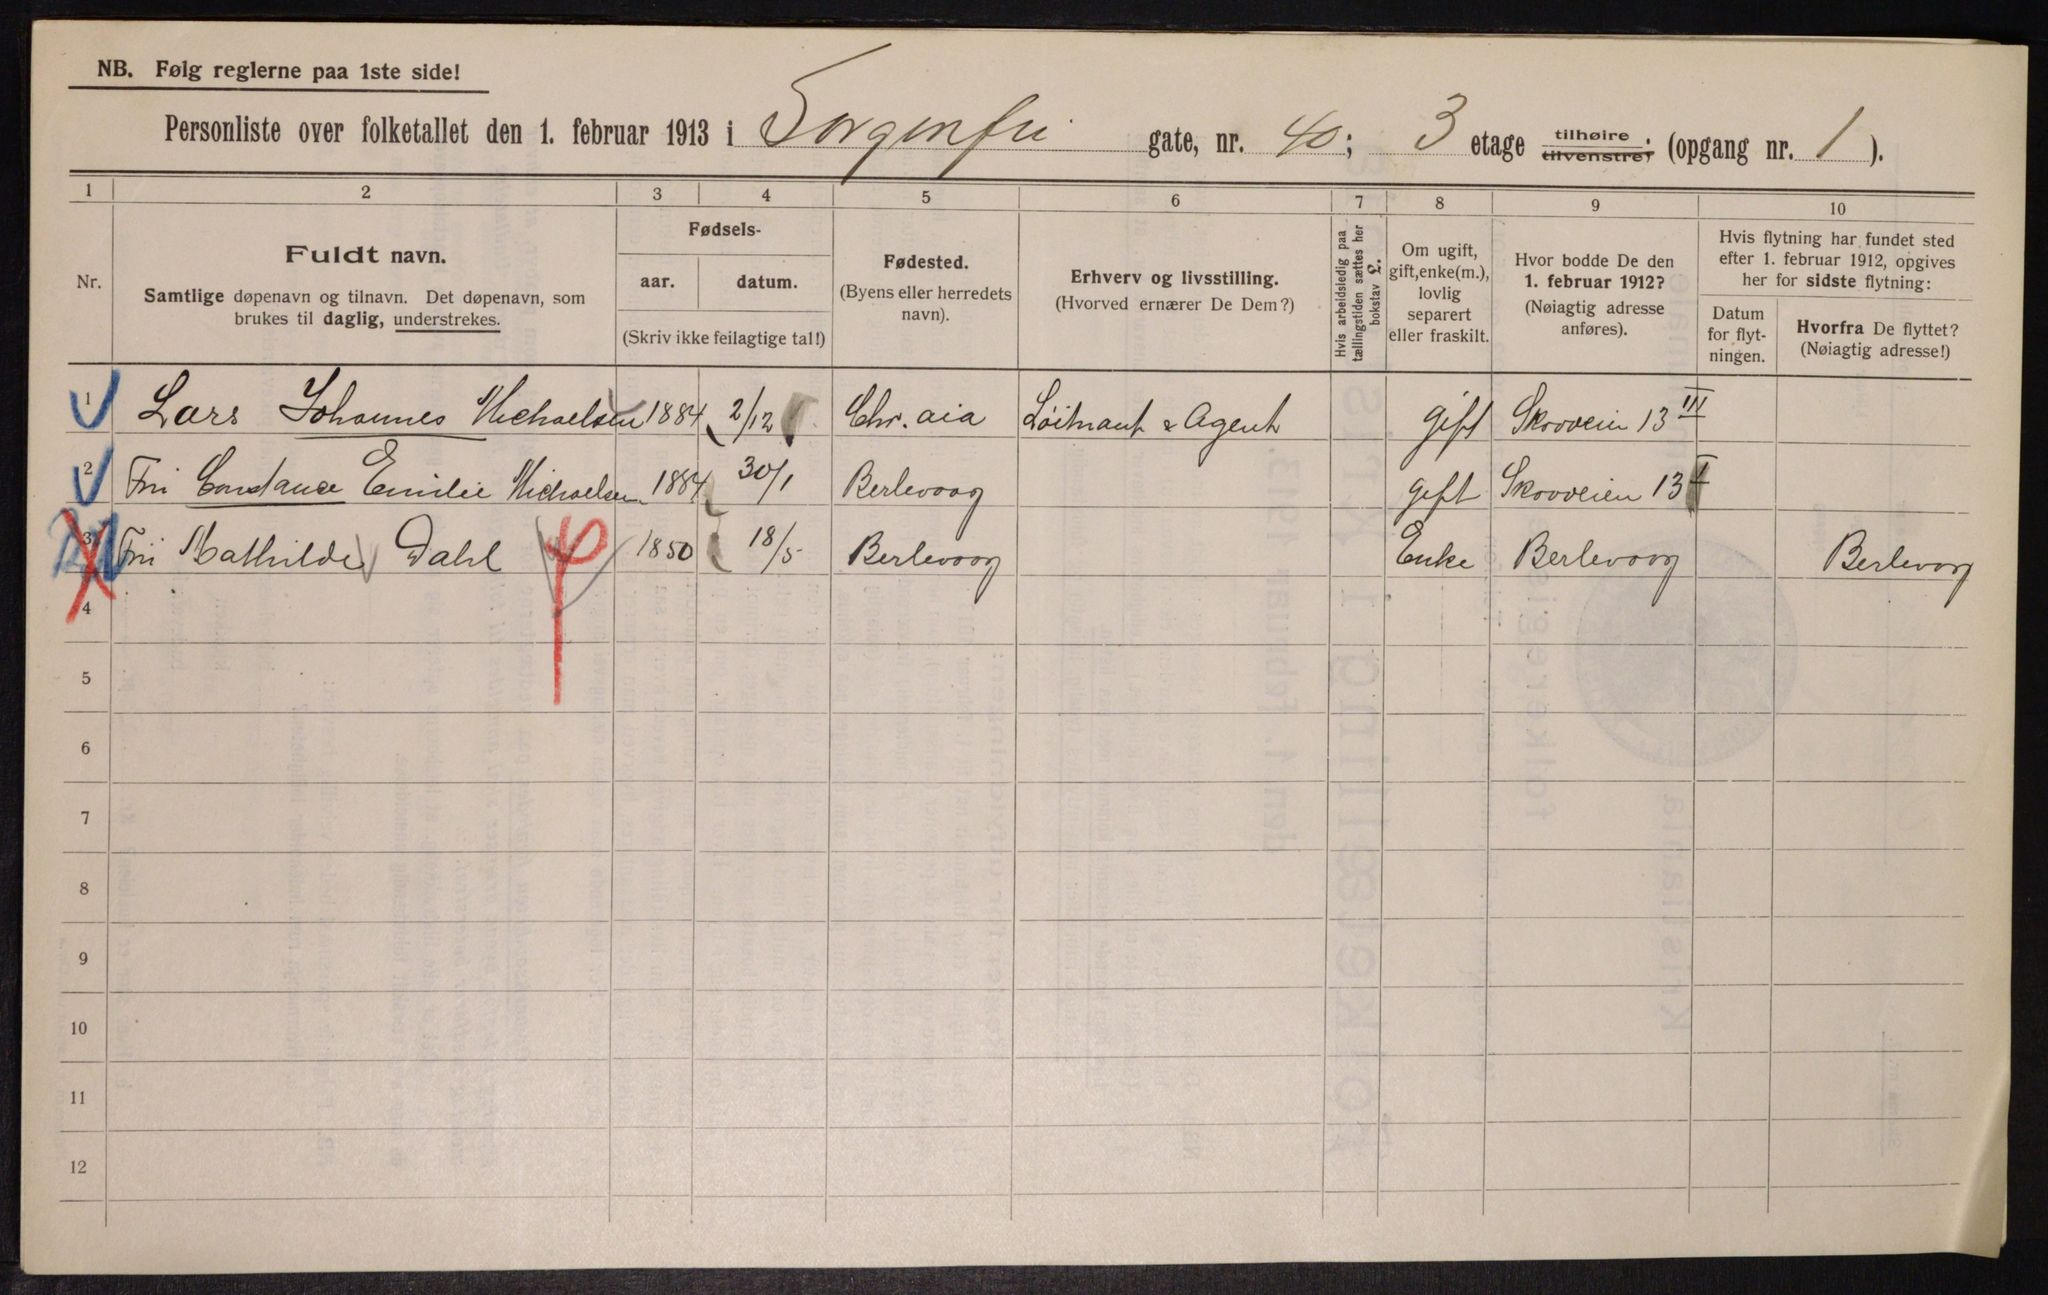 NB. Følg reglerne paa 1ste side!
Personliste over folketallet den 1. februar 1913 i Sorgenfri gate, nr. 40; 3 etage tilhøire tilvenstre; (opgang nr. 1).
1 2 3 4 5 6 7 8 9 10
Nr.
Fuldt navn.
Samtlige døpenavn og tilnavn. Det døpenavn, som
brukes til daglig, understrekes.
Fødsels-
aar. datum.
(Skriv ikke feilagtige tal!)
Fødested.
(Byens eller herredets
navn).
Erhverv og livsstilling.
(Hvorved ernærer De Dem?)
Hvis arbeidsledig paa
tællingstiden sættes her
bokstav L.
Om ugift,
gift, enke(m.),
lovlig
separert
eller fraskilt.
Hvor bodde De den
1. februar 1912?
(Nøiagtig adresse
anføres).
Hvis flytning har fundet sted
efter 1. februar 1912, opgives
her for sidste flytning:
Datum
for flyt-
ningen.
Hvorfra De flyttet?
(Nøiagtig adresse!)
1 Lars Johannes Michaelsen 1884 2/12 Chr. aia Löitnant & Agent gift Skovveien 13 III
2 Fru Constance Emilie Michaelsen 1884 30/1 Berlevaag gift Skovveien 13
3 Fru Mathilde Dahl 1850 18/5 Berlevaag Enke Berlevaag Berlevaag
4
5
6
7
8
9
10
11
12